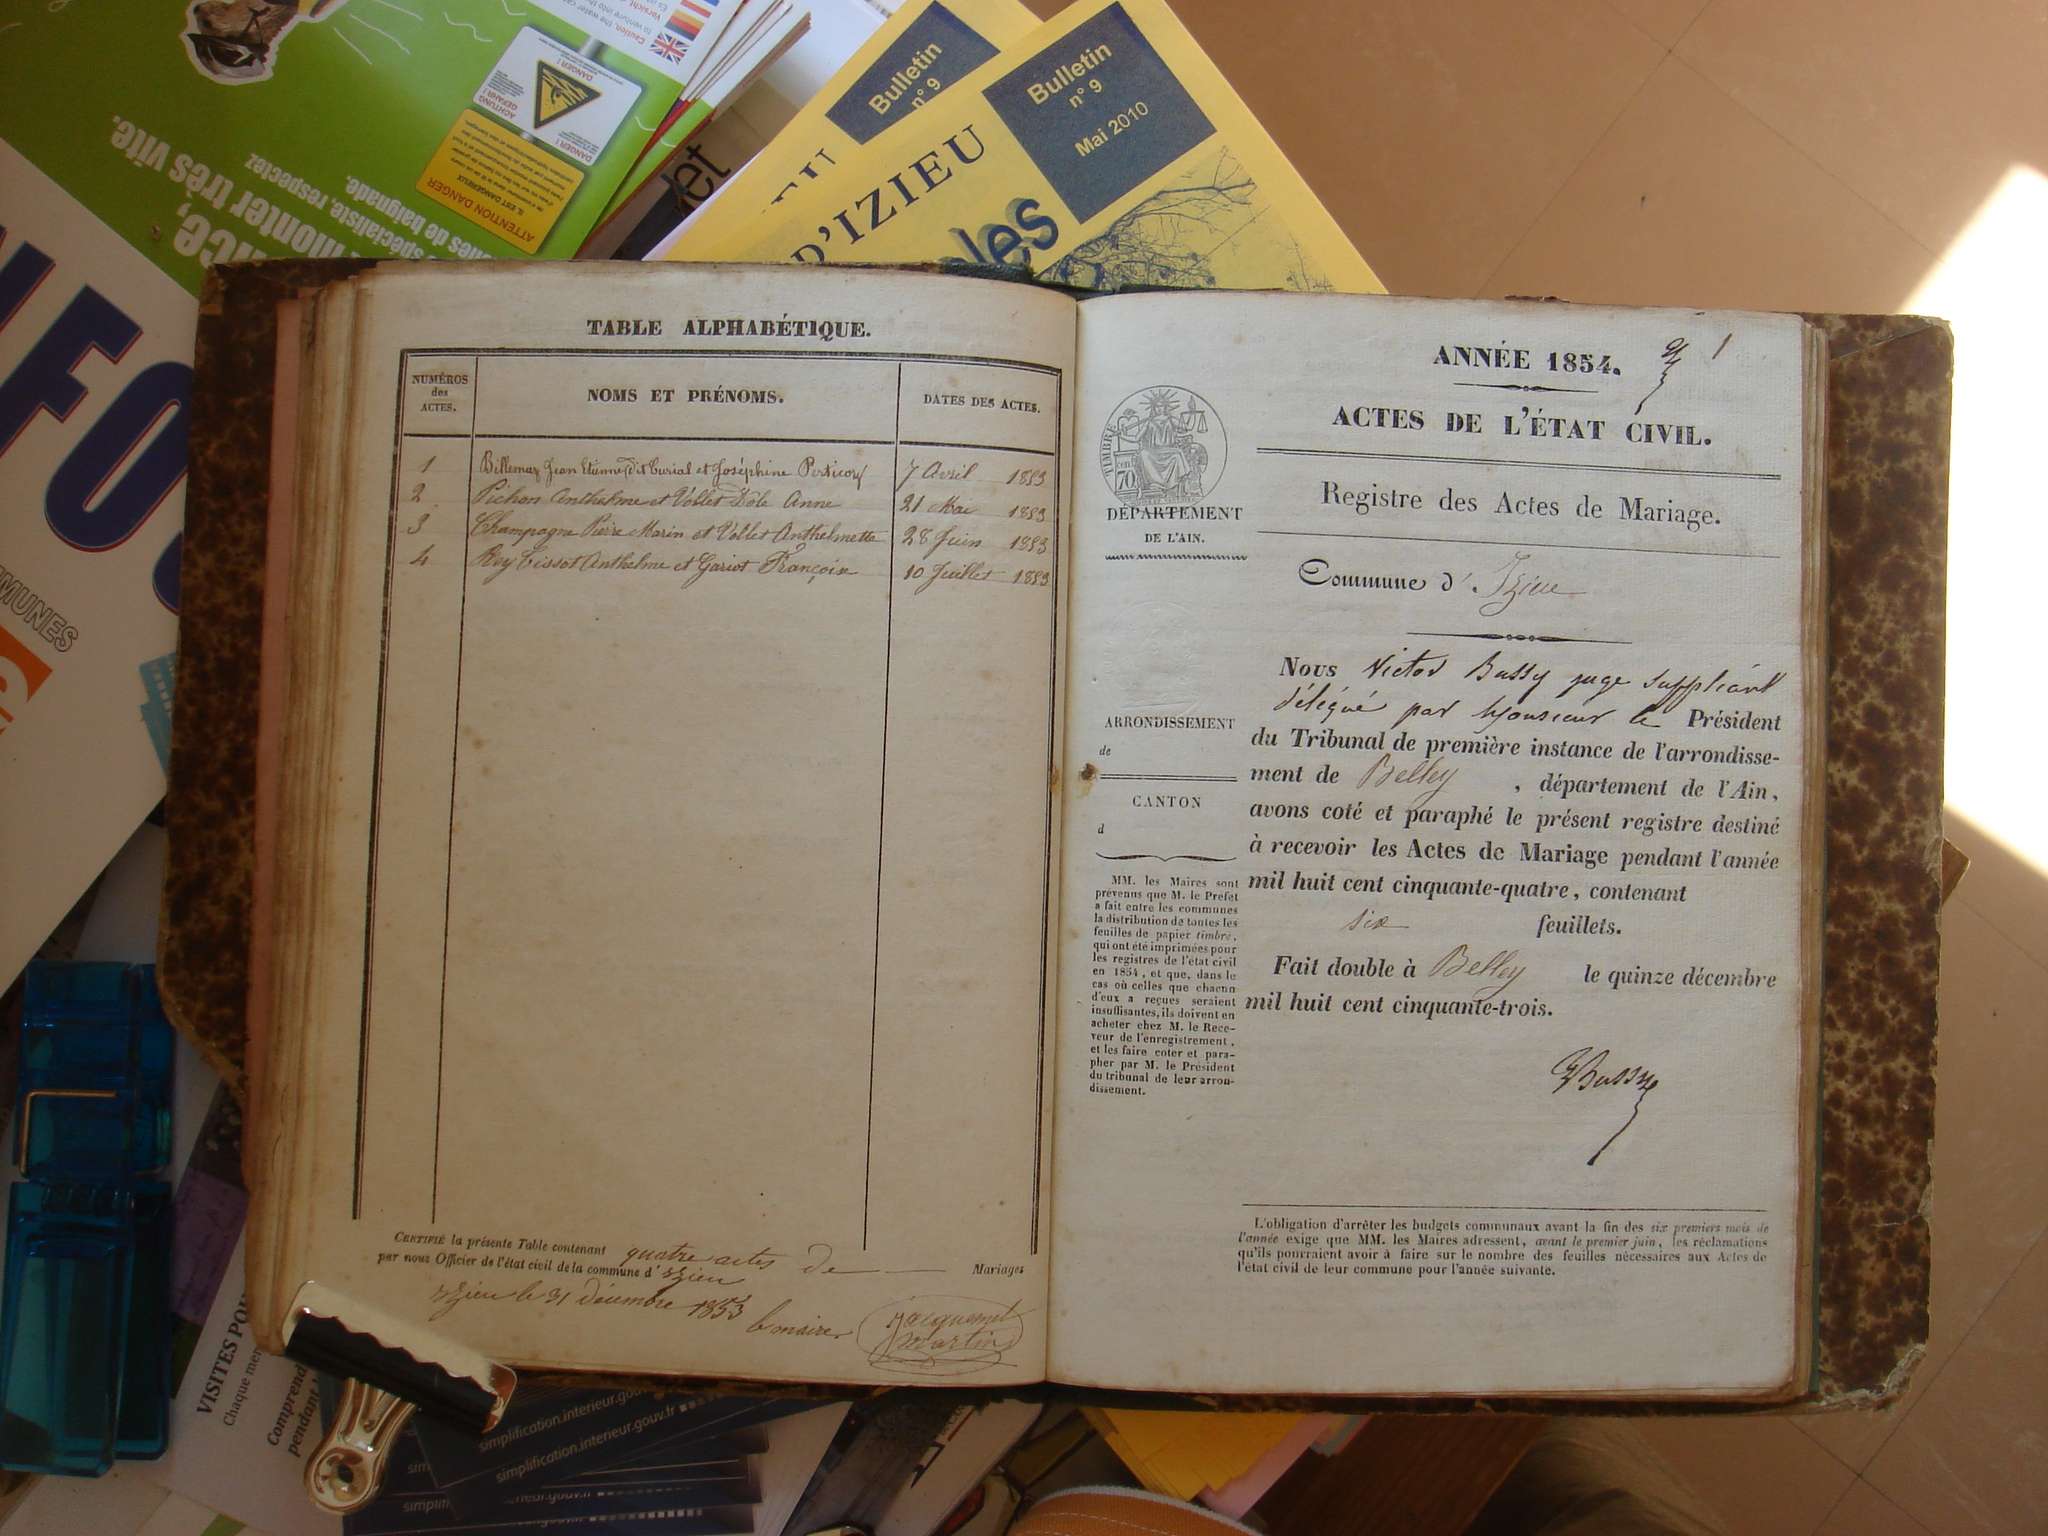 Bulletin
n° 9
Bulletin
n° 9
Mai 2010
D'IZIEU
ATTENTION DANGER
DANGER !
ACHTUNG
GEFAHR !
monter très vite.
spécialiste, respectez
de baignade.
MUNES
TABLE ALPHABÉTIQUE.
NUMÉROS des ACTES.
NOMS ET PRÉNOMS.
DATES DES ACTES.
1 Billemaz Jean Etienne dit Curial et Joséphine 7 Avril 1853
2 Pichon Anthelme et Vollet Dôle Anne 21 Mai 1853
3 Champagne Pierre Marin et Vollet Anthelmette 28 Juin 1853
4 Rey Tissot Anthelme et Gariot Françoise 10 Juillet 1853
CERTIFIÉ la présente Table contenant quatre actes de Mariages
par nous Officier de l'état civil de la commune d'Izieu
Izieu le 31 décembre 1853
le maire
Jacquemet
Martin
ANNÉE 1854.
1
ACTES DE L'ÉTAT CIVIL.
TIMBRE
70
DÉPARTEMENT
DE L'AIN.
Registre des Actes de Mariage.
Commune d'Izieu
ARRONDISSEMENT
de
CANTON
d
MM. les Maires sont
prévenus que M. le Préfet
a fait entre les communes
la distribution de toutes les
feuilles de papier timbré,
qui ont été imprimées pour
les registres de l'état civil
en 1854, et que, dans le
cas où celles que chacun
d'eux a reçues seraient
insuffisantes, ils doivent en
acheter chez M. le Rece-
veur de l'enregistrement,
et les faire coter et para-
pher par M. le Président
du tribunal de leur arron-
dissement.
Nous Victor Bussy juge suppléant
délégué par Monsieur le Président
du Tribunal de première instance de l'arrondisse-
ment de Belley, département de l'Ain,
avons coté et paraphé le présent registre destiné
à recevoir les Actes de Mariage pendant l'année
mil huit cent cinquante-quatre, contenant
six feuillets.
Fait double à Belley le quinze décembre
mil huit cent cinquante-trois.
VBussy
L'obligation d'arrêter les budgets communaux avant la fin des six premiers mois de
l'année exige que MM. les Maires adressent, avant le premier juin, les réclamations
qu'ils pourraient avoir à faire sur le nombre des feuilles nécessaires aux Actes de
l'état civil de leur commune pour l'année suivante.
VISITES POU
Chaque mer
Comprend
pendant l
simplification.interieur.gouv.fr
simplification.interieur.gouv.fr